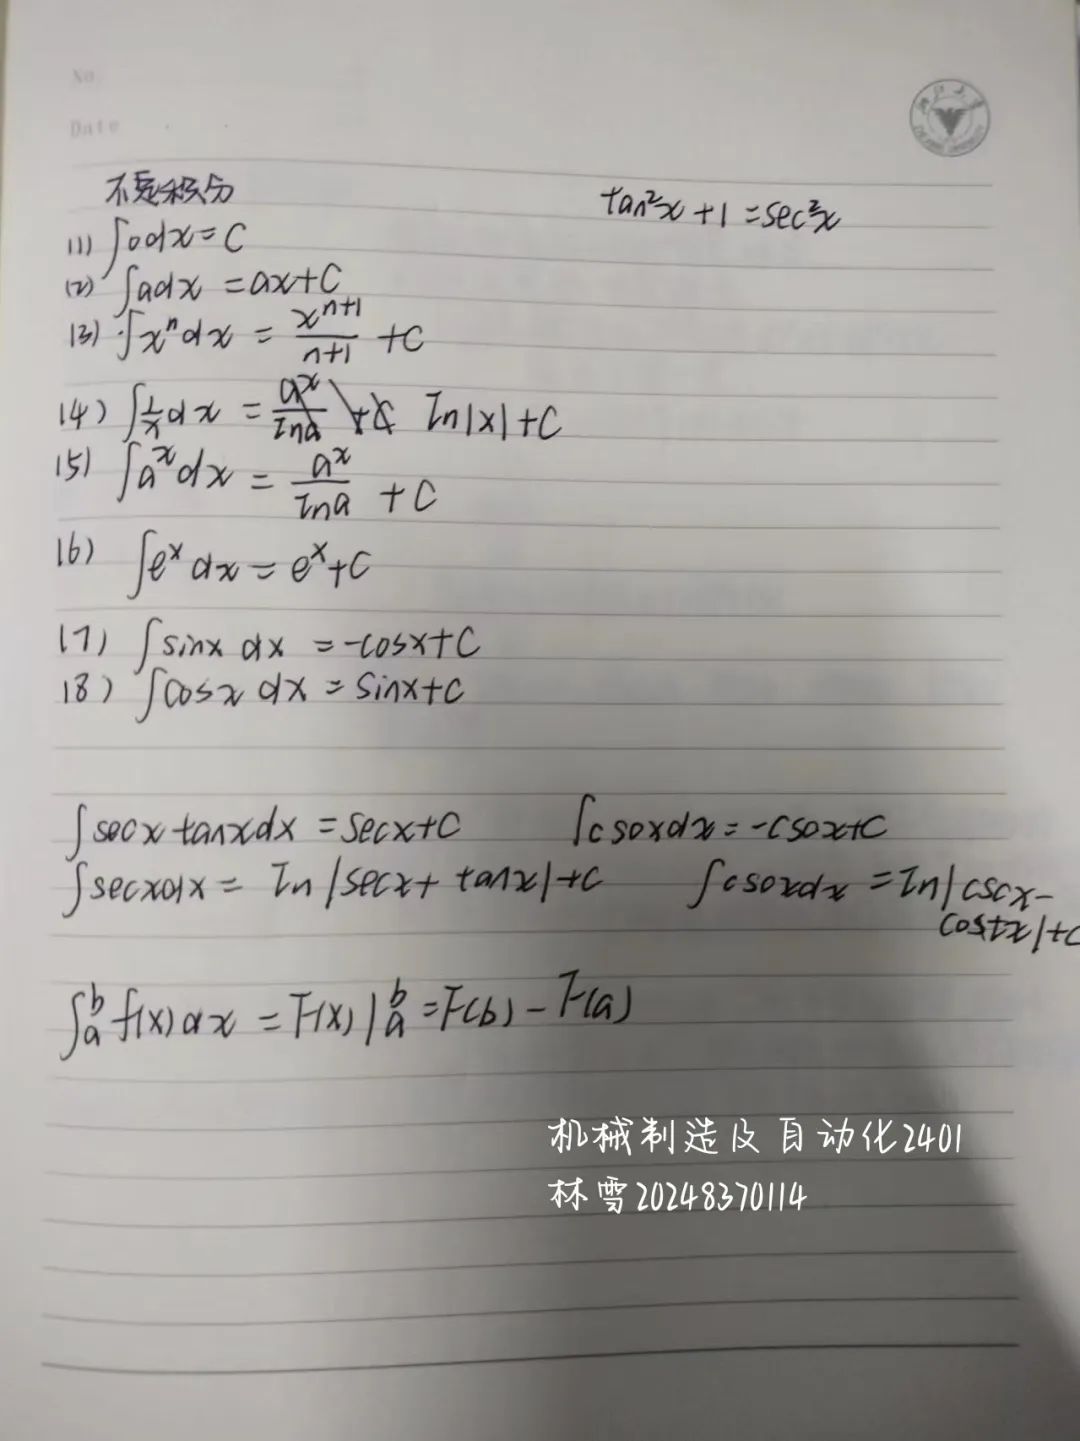 No.
Date
不定积分
tan²x + 1 = sec²x
(1) ∫0dx = C
(2) ∫adx = ax + C
(3) ∫xⁿdx = xⁿ⁺¹/n+1 + C
(4) ∫1/x dx = aˣ/Ina + C In|x| + C
(5) ∫aˣdx = aˣ/Ina + C
(6) ∫eˣ dx = eˣ + C
(7) ∫sinx dx = -cosx + C
(8) ∫cosx dx = sinx + C
∫secx tanxdx = secx + C ∫csoxdx = -csox + C
∫secxdx = In|secx + tanx| + C ∫csoxdx = In|cscx -
costx| + C
∫ₐᵇ f(x)dx = F(x)|ₐᵇ = F(b) - F(a)
机械制造及自动化2401
林雪20248370114